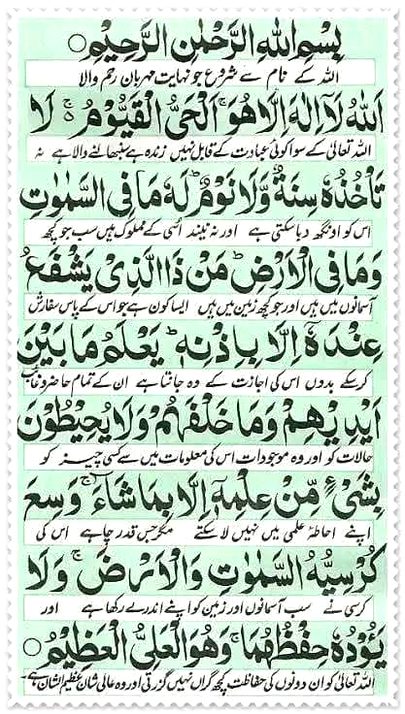 بِسْمِ اللهِ الرَّحْمٰنِ الرَّحِيْمِ ○
اللہ کے نام سے شروع جو نہایت مہربان رحم والا
اَللهُ لَآ اِلٰهَ اِلَّا هُوَ ۚ اَلْحَیُّ الْقَیُّوْمُ ۚ لَا
اللہ تعالیٰ کے سوا کوئی عبادت کے قابل نہیں زندہ ہے سنبھالنے والا ہے نہ
تَاْخُذُهٗ سِنَةٌ وَّلَا نَوْمٌ ؕ لَهٗ مَا فِی السَّمٰوٰتِ
اس کو اونگھ دبا سکتی ہے اور نہ نیند اسی کے مملوک ہیں سب جو کچھ
وَمَا فِی الْاَرْضِ ؕ مَنْ ذَا الَّذِیْ یَشْفَعُ
آسمانوں میں ہیں اور جو کچھ زمین میں ہیں ایسا کون ہے جو اس کے پاس سفارش
عِنْدَهٗۤ اِلَّا بِاِذْنِهٖ ؕ یَعْلَمُ مَا بَیْنَ
کرسکے بدوں اس کی اجازت کے وہ جانتا ہے ان کے تمام حاضر و غائب
اَیْدِیْهِمْ وَمَا خَلْفَهُمْ وَلَا یُحِیْطُوْنَ
حالات کو اور وہ موجودات اس کی معلومات میں سے کسی چیز کو
بِشَیْءٍ مِّنْ عِلْمِهٖۤ اِلَّا بِمَا شَآءَ ۚ وَسِعَ
اپنے احاطۂ علمی میں نہیں لا سکتے مگر جس قدر چاہے اس کی
كُرْسِیُّهُ السَّمٰوٰتِ وَالْاَرْضَ ۚ وَلَا
کرسی نے سب آسمانوں اور زمین کو اپنے اندر لے رکھا ہے اور
یَـُٔوْدُهٗ حِفْظُهُمَا ۚ وَهُوَ الْعَلِیُّ الْعَظِیْمُ ○
اللہ تعالیٰ کو ان دونوں کی حفاظت کچھ گراں نہیں گزرتی اور وہ عالی شان عظیم الشان ہے۔